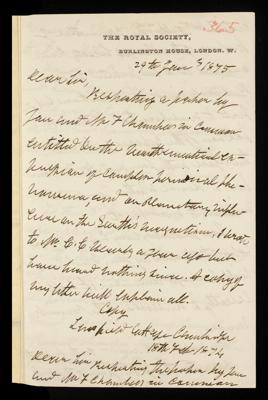 365
THE ROYAL SOCIETY,
BURLINGTON HOUSE, LONDON. W.
29th 1875
Dear Sir,
Respecting a paper by
you and Mr F Chambers in Common
entitled On the Mathematical Ex-
pression of Complex Periodical Phe-
nomena and on Planetary Influ-
ence on the Earth's Magnetism, I wrote
to Mr C. C a year ago but
have heard nothing since. A copy of
my letter will explain all.
Copy
Cambridge
Dear Sir, Respecting the paper by you
and Mr F Chambers in Common